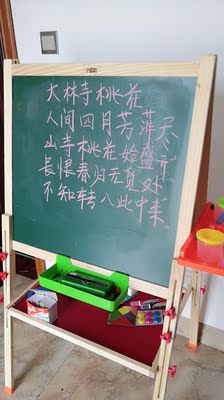 大林寺桃花
人间四月芳菲尽
山寺桃花始盛开
長恨春归无觅处
不知转入此中来